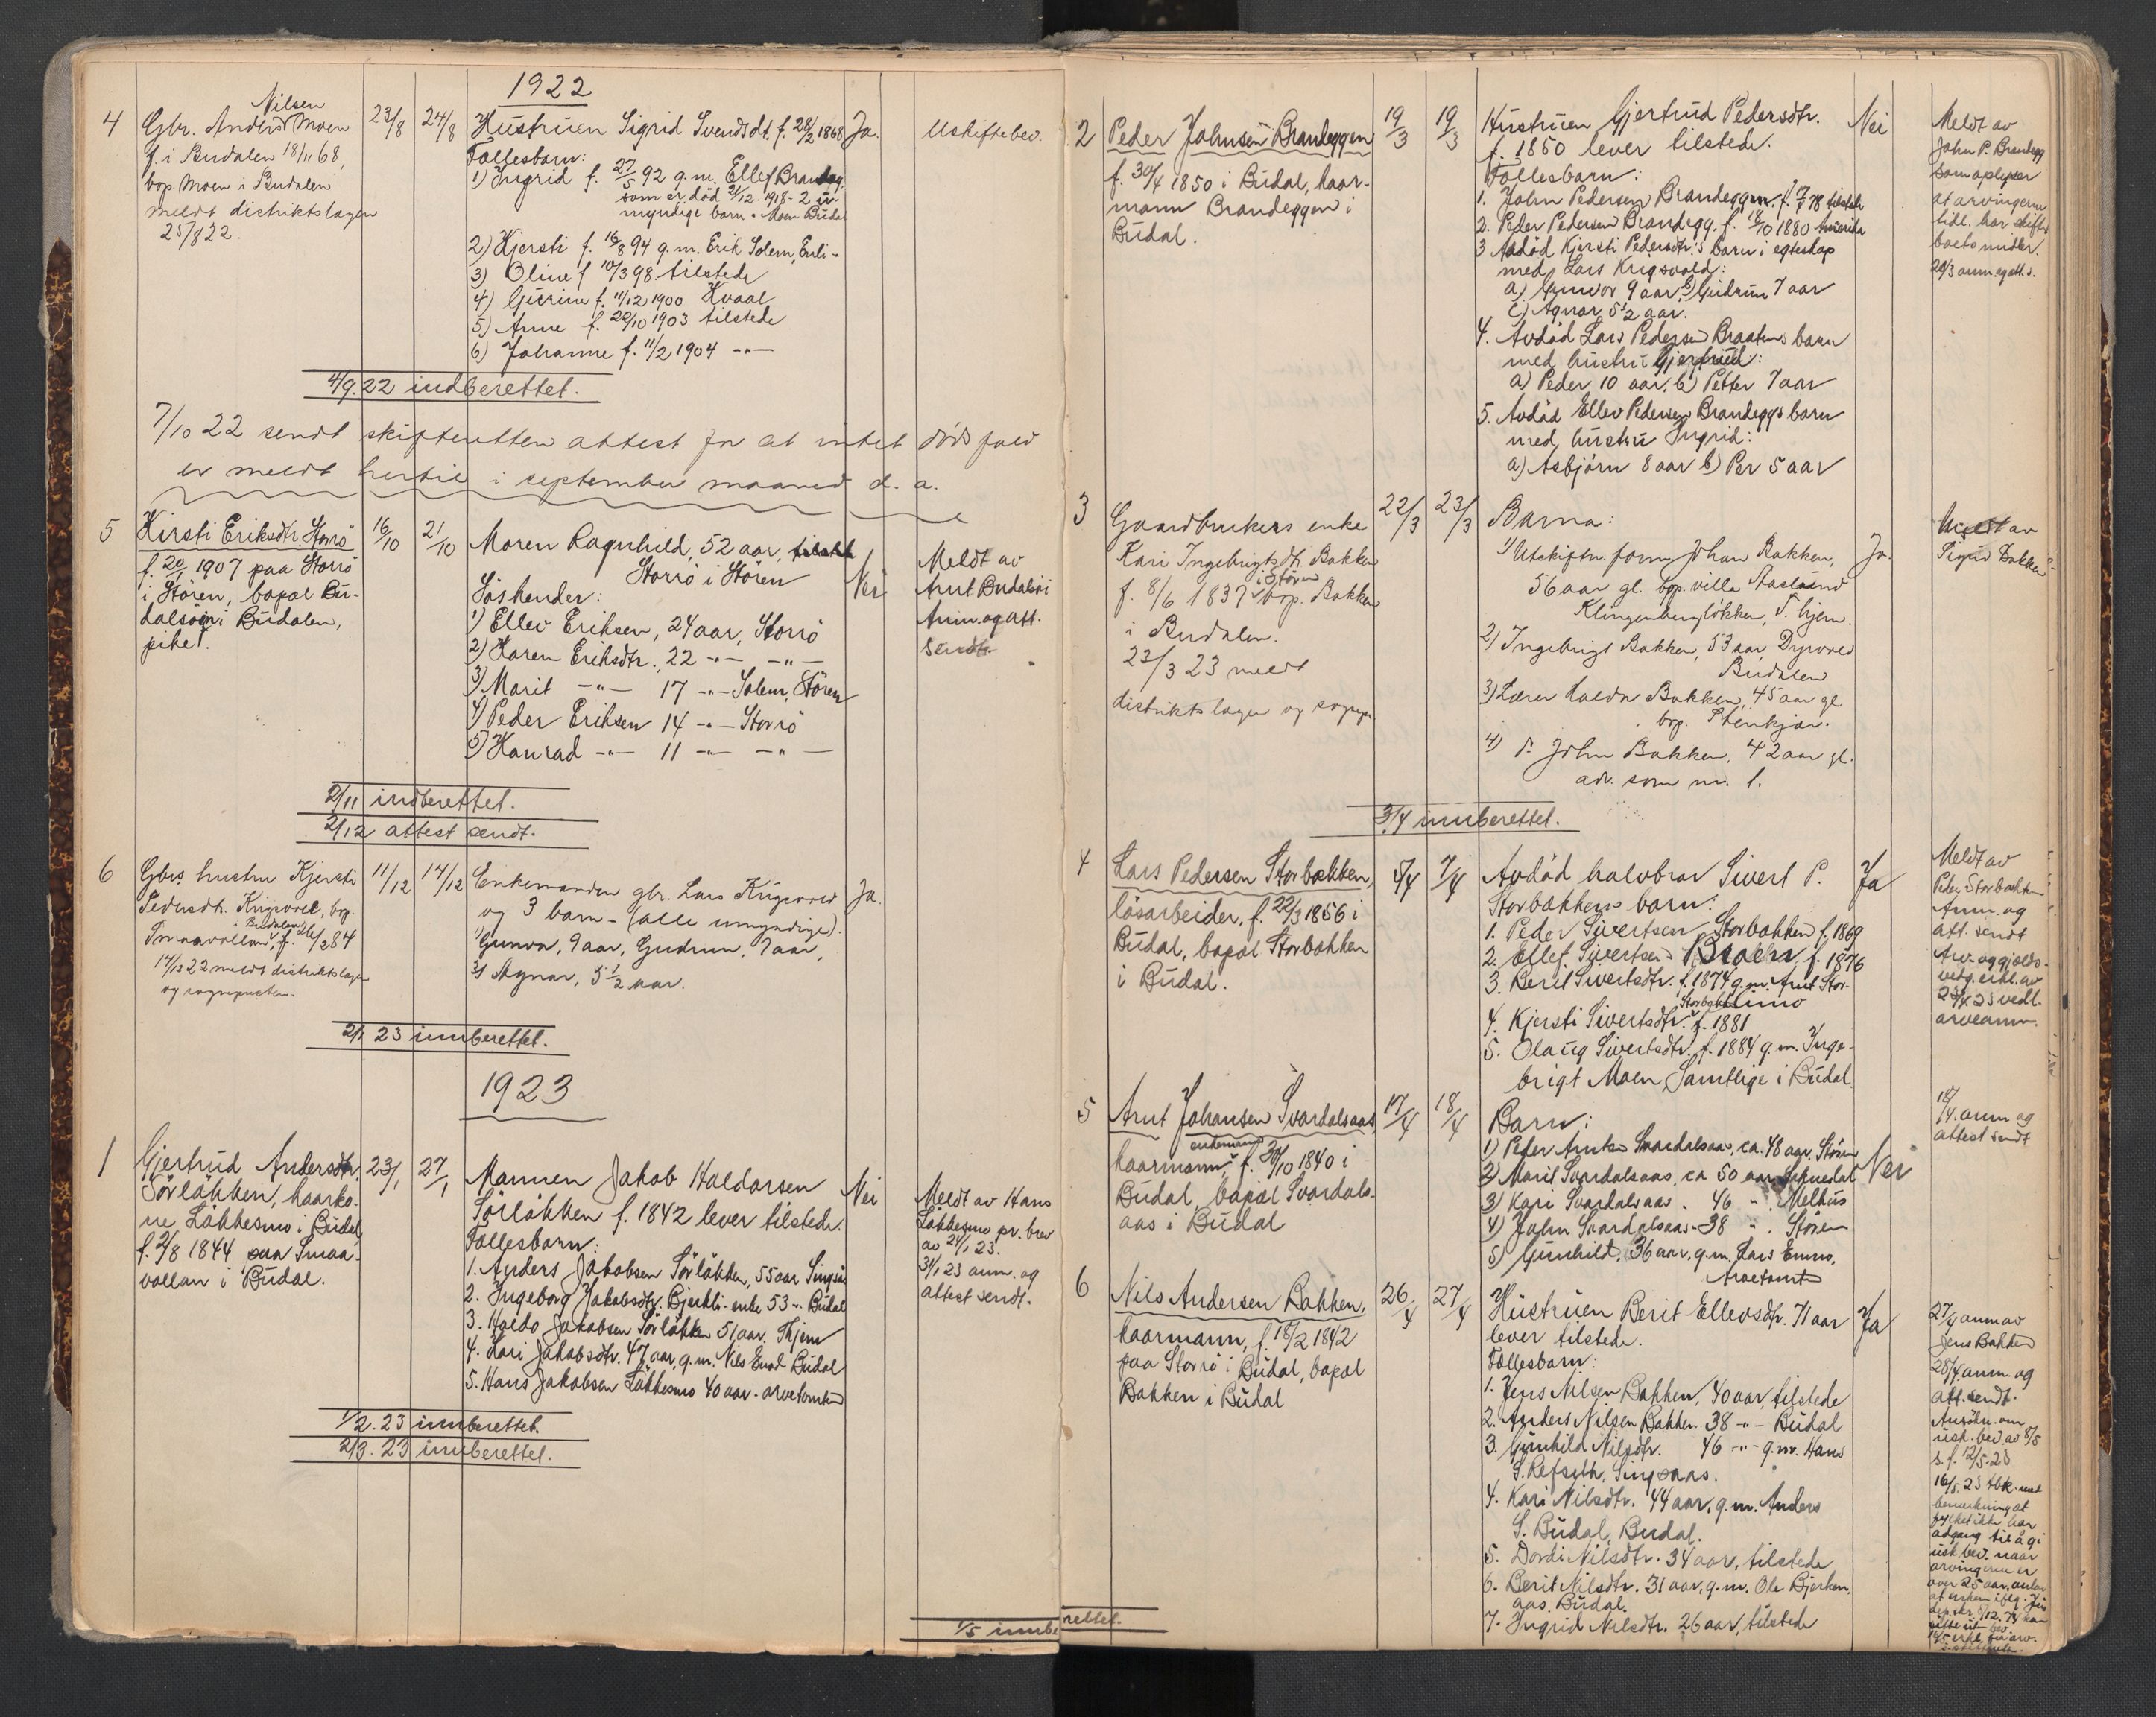 1922
4
Nilsen
Gbr. Anders Moen
f. i Budalen 18/11 68,
bop Moen i Budalen
meldt distriktslagen
25/8 22.
23/8
24/8
Hustruen Sigrid Svendsdt. f. 28/2 1868
Fællesbarn:
1) Ingrid f. 27/5 92 g.m. Ellef Brandeg
som er død 21/12 1918 - 2 u-
myndige barn - Moen Budal
2) Kjersti f. 16/8 94 g.m. Erik Solem,
3) Oline f 10/3 98 tilstede
4) Gurine f. 11/12 1900 Kvaal
5) Anne f. 22/10 1903 tilstede
6) Johanne f. 11/2 1904 -"-
Ja.
Uskiftebev.
4/9.22 indberettet.
7/10 22 sendt skifteretten attest for at intet dødsfald
er meldt hertil i september maaned d. a.
5
Kirsti Eriksdtr. Storrö
f. 20/1 1907 paa Storrö
i Stören, bopæl Bu-
dalsöien i Budalen,
pike.
16/10
21/10
Moren Ragnhild, 52 aar,
Storrö i Stören
Söskender:
1) Ellev Eriksen, 24 aar, Storrö
2) Karen Eriksdtr. 22 -"- -"-
3) Marit -"- 17 -"- Solem, Stören
4) Peder Eriksen 14 -"- Storrö
5) Konrad -"- 11 -"- -"-
Nei
Meldt av
Arnt Budalsöi
Anm. og att.
sendt.
2/11 indberettet.
2/12 attest sendt.
6
Gbrs hustru Kjersti
Pedersdt. Krigsvold, bop.
i Budalen
Smaavollan, f. /2 84
14/12 22 meldt distriktslagen
og sogneprsten.
11/12
14/12
Enkemanden gbr. Lars Krigsvold
og 3 barn - (alle umyndige).
1) Gunvor, 9 aar, Gudrun, 7 aar,
3) Agnar, 5 1/2 aar.
Ja.
2/1 23 innberettet.
1923
1
Gjertrud Andersdtr.
Sörlökken, kaarko-
ne Lökkesmo i Budal,
f. 2/8 1844 paa Smaa-
vollan i Budal.
23/1
27/1
Mannen Jakob Haldorsen
Sörlökken f. 1842 lever tilstede.
Fællesbarn:
1. Anders Jakobsen Sörlökken, 55 aar Singsås
2. Ingeborg Jakobsdtr. Bjerkli - enke 53 -"- Budal
3. Haldo Jakobsen Sörlökken 51 aar. Thjem
4. Kari Jakobsdtr. 47 aar, g.m. Nils Enod Budal
5. Hans Jakobsen Lökkesmo 40 aar - arvetomten
Nei
Meldt av Hans
Lökkesmo pr. brev
av 24/1 23.
31/1 23 anm. og
attest sendt.
1/2. 23 innberettet.
2/3. 23 innberettet.
2
Peder Johnsen Brandeggen
f. 30/4 1850 i Budal, kaar-
mann Brandeggen i
Budal.
19/3
19/3
Hustruen Gjertrud Pedersdtr.
f. 1850 lever tilstede.
Fællesbarn:
1. John Pedersen Brandeggen. f. 78 tilstede
2. Peder Pedersen Brandegg. f. 18/10 1880 Amerika
3 Avdød Kjersti Pedersdtr.'s barn i egteskap
med Lars Krigsvold:
a) Gunvor 9 aar, b) Gudrun 7 aar
c) Agnar 5 1/2 aar.
4. Avdöd Lars Pedersen Braatens barn
med hustru Gjertrud:
a) Peder 10 aar, b) Petter 7 aar
5. Avdöd Ellev Pedersen Brandeggs barn
med hustru Ingrid:
a) Asbjörn 8 aar b) Per 5 aar
Nei
Meldt av
John P. Brandegg
som oplyser
at arvingerne
tidl. har skiftet
boets midler.
20/3 anm. og att. s.
3
Gaardbrukers enke
Kari Ingebrigtsdt. Bakken
i Stören
f. 8/6 1837 bop. Bakken
i Budalen.
23/3 23 meldt
distriktslagen og sognepr.
22/3
23/3
Barna:
1) Utskiftn.form Johan Bakken,
56 aar gl. bop. villa
Klingenberglökken, T. hjem.
2) Ingebrigt Bakken, 53 aar
Budalen
3) Lærer Haldor Bakken, 45 aar gl
bop. Stenkjær.
4) John Bakken, 42 aar gl.
adr. som nr. 1.
Ja.
Meldt av
Bakken
3/4 innberettet.
4
Lars Pedersen Storbakken,
lösarbeider, f. 22/3 1856 i
Budal, bopæl Storbakken
i Budal.
5/4
7/4
Avdöd halvbror Sivert P.
Storbakkens barn:
1. Peder Sivertsen Storbakken f. 1869
2. Ellef Sivertsen Broen f. 1876
3. Berit Sivertsdtr. f. 1874 g.m. Arnt Stor-
Storbakk mo
4. Kjersti Sivertsdtr. f. 1881
5. Olaug Sivertsdtr. f. 1884 g.m. Inge-
brigt Moen, Samtlige i Budal.
Ja
Meldt av
Peder Storbakken
Anm. og
att. sendt
Arv. og gjelds-
vedg.erkl. av
23/4 23 vedl.
arveanm.
5
Arnt Johansen Svardalsaas,
enkemann
kaarmann, f. 30/10 1840 i
Budal, bopæl Svardals-
aas i Budal
17/4
18/4
Barn:
1) Peder Arntsen Svardalsaas, ca. 48 aar, Stören
2) Marit Svardalsaas, ca 50 aar Soknedal
3) Kari Svardalsaas - 46 " - Melhus
4) John Svardalsaas - 38 " - Stören
5) Gunhild, 36 aar, g.m. Lars Enmo,
Arvetomten
Nei
18/4. anm og
attest sendt
6
Nils Andersen Bakken,
kaarmann, f. 18/2 1842
paa Storrö i Budal, bopæl
Bakken i Budal
26/4
27/4
Hustruen Berit Ellevsdtr. 71 aar
lever tilstede.
Fællesbarn:
1. Jens Nilsen Bakken, 40 aar, tilstede
2. Anders Nilsen Bakken 38 -"- Budal
3. Gunhild Nilsdtr. 46 -"- g.m. Hans
S. Refseth, Singsaas.
4. Kari Nilsdtr. 44 aar, g.m. Anders
S. Budal, Budal.
5. Dordi Nilsdtr. 34 aar, tilstede
6. Berit Nilsdtr. 31 aar, g.m. Ole Bjerken-
aas, Budal.
7. Ingrid Nilsdtr. 26 aar, tilstede
Ja
27/4 anm av
Jens Bakken
28/4 anm. og
att. sendt.
Ansökn. om
usk. bev. av 8/5
s. f. 12/5-23
16/5. 23 tbk. med
bemerkning at
fylket ikke har
adgang til å gi
usk. bev. naar
arvingerne er
over 25 aar,
1/5 innberettet.